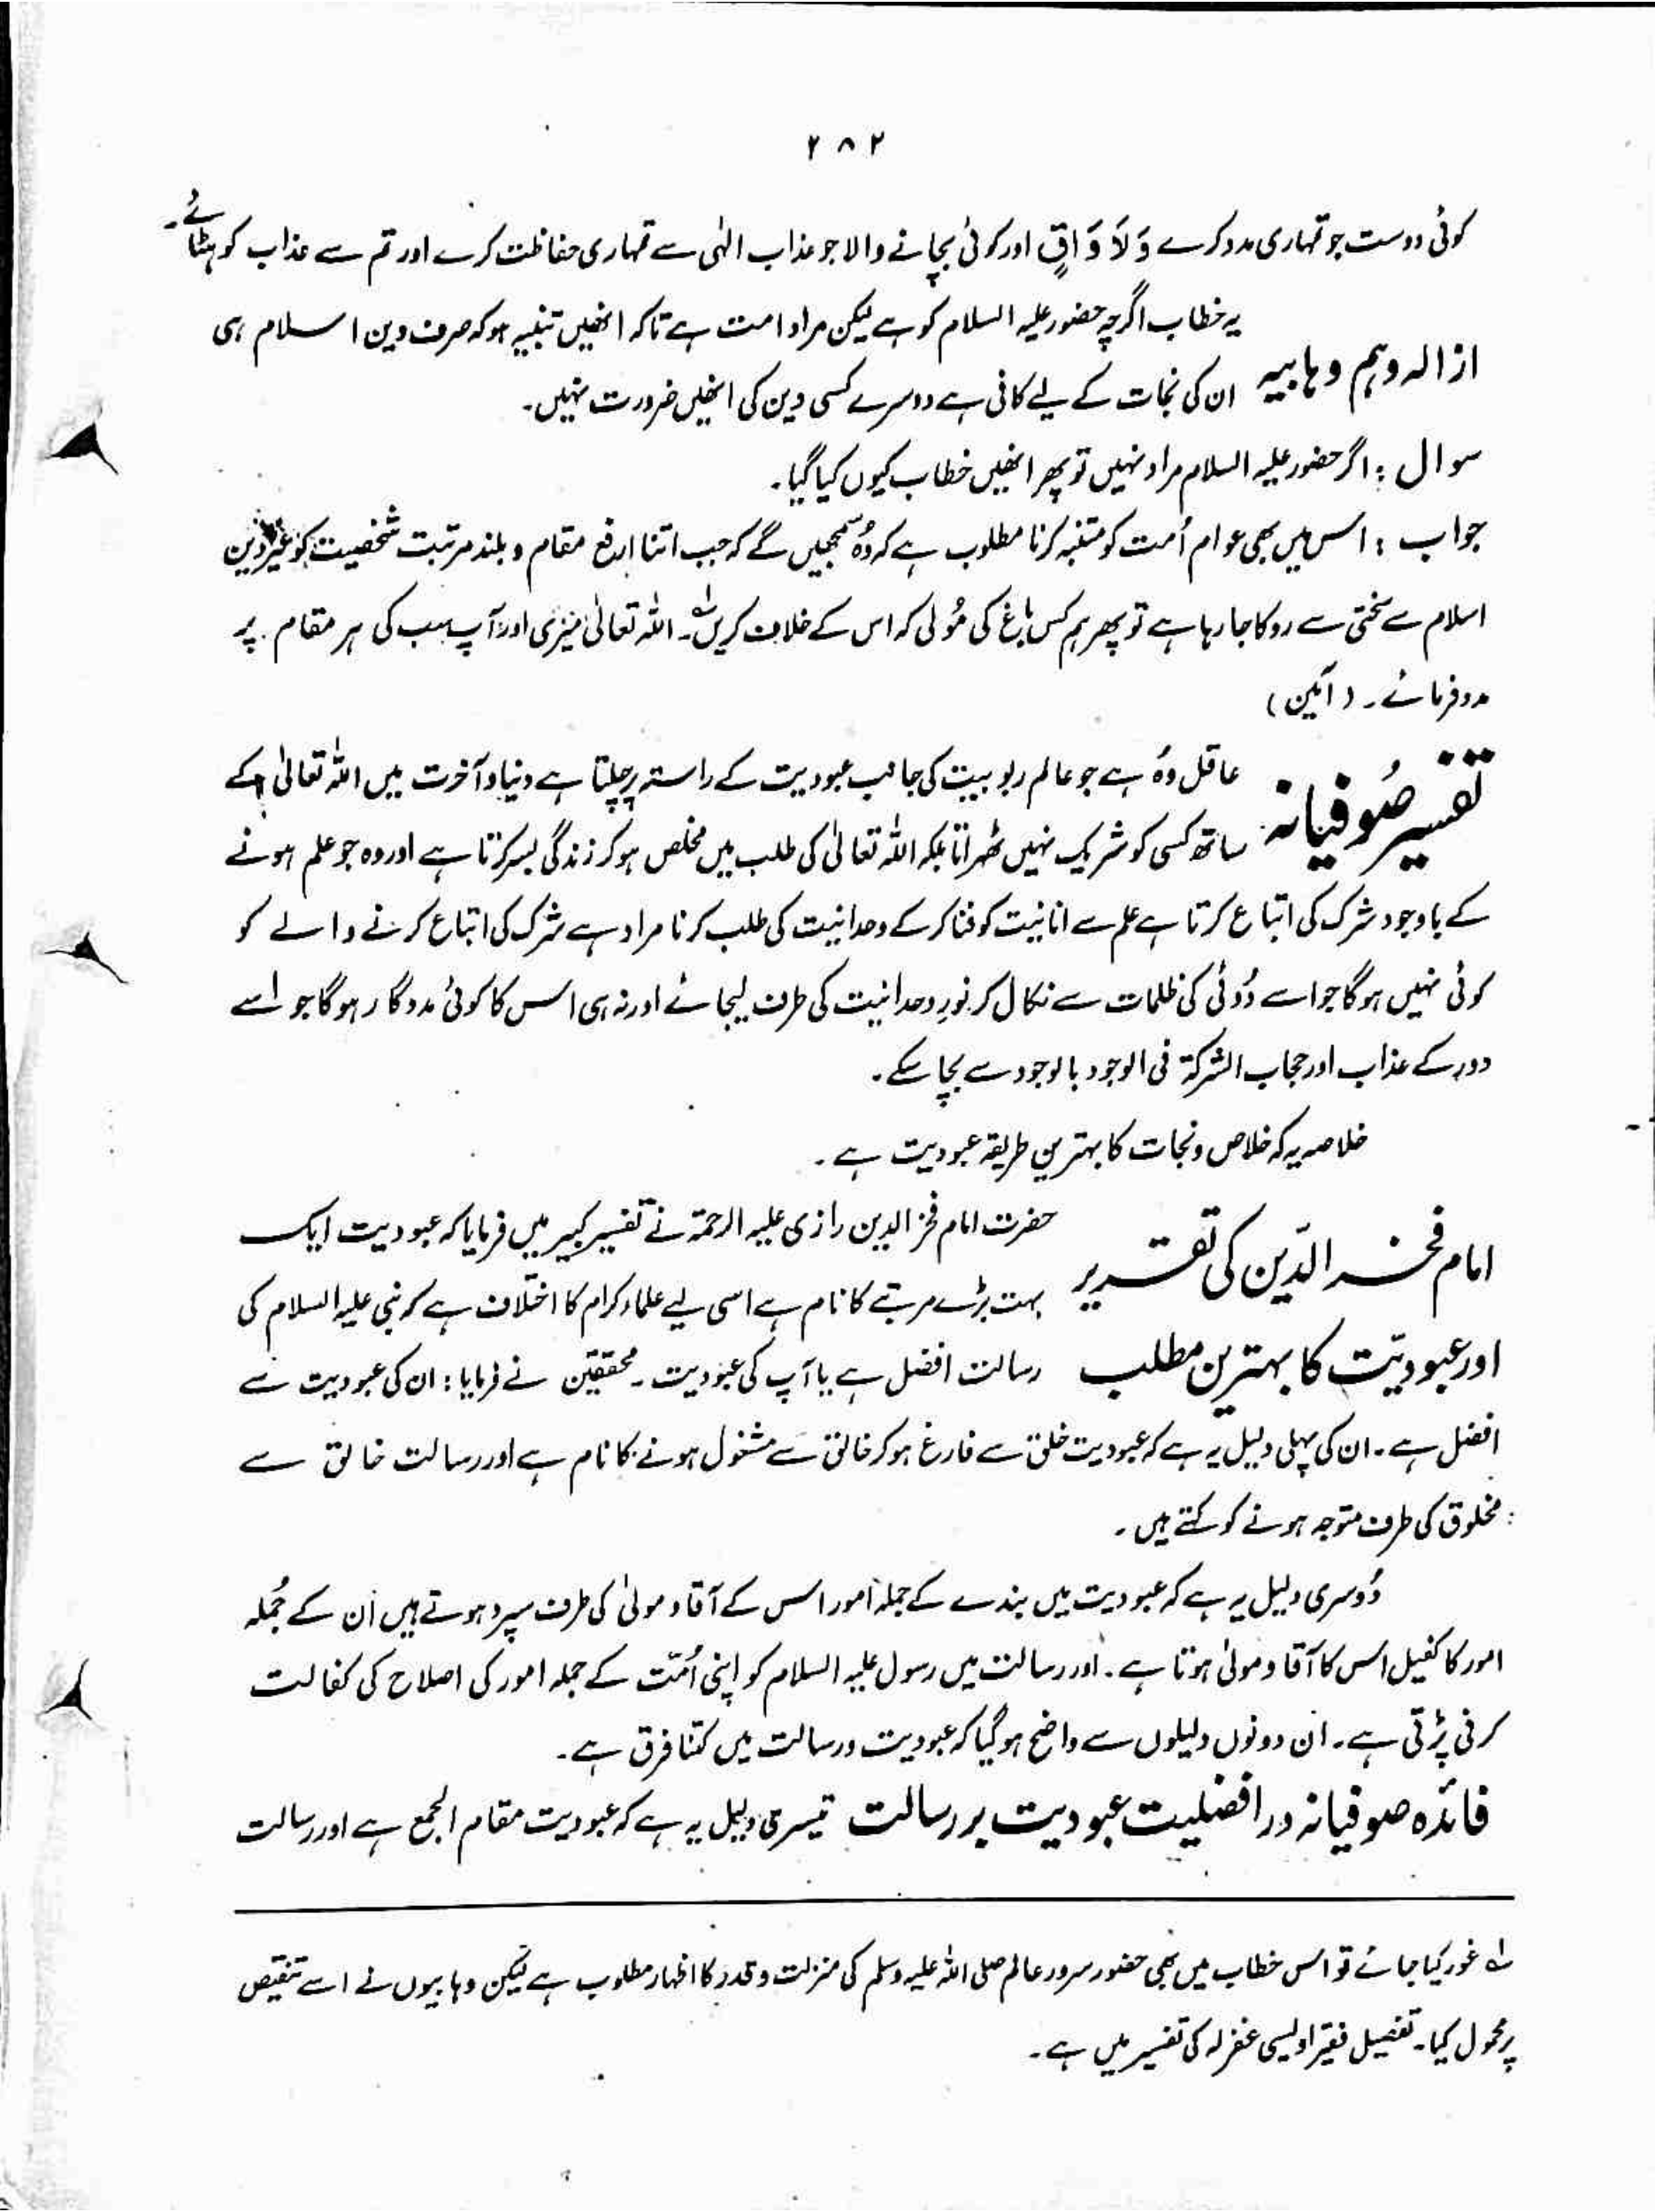 ۲۸۲
کوئی دوست جو تمہاری مدد کرے وَلَا وَاقٍ اور کوئی بچانے والا جو عذاب الٰہی سے تمہاری حفاظت کرے اور تم سے عذاب کو ہٹائے۔
ازالہ وہم وہابیہ
یہ خطاب اگرچہ حضور علیہ السلام کو ہے لیکن مراد امت ہے تاکہ انھیں تنبیہ ہو کہ صرف دین اسلام ہی
ان کی نجات کے لیے کافی ہے دوسرے کسی دین کی انھیں ضرورت نہیں۔
سوال : اگر حضور علیہ السلام مراد نہیں تو پھر انھیں خطاب کیوں کیا گیا۔
جواب : اس میں بھی عوام اُمت کو متنبہ کرنا مطلوب ہے کہ وُہ سمجھیں گے کہ جب اتنا ارفع مقام و بلند مرتبت شخصیت کو غیر دین
اسلام سے سختی سے روکا جا رہا ہے تو پھر ہم کس باغ کی مُولی کہ اس کے خلاف کریں لہ۔ اللہ تعالیٰ میری اور آپ سب کی ہر مقام پر
مدد فرمائے۔ (آمین)
تفسیر صُوفیانہ
عاقل وُہ ہے جو عالم ربوبیت کی جانب عبودیت کے راستہ پر چلتا ہے دنیا و آخرت میں اللہ تعالیٰ کے
ساتھ کسی کو شریک نہیں ٹھہراتا بلکہ اللہ تعالیٰ کی طلب میں مخلص ہو کر زندگی بسر کرتا ہے اور وہ جو علم ہونے
کے باوجود شرک کی اتباع کرتا ہے علم سے انانیت کو فنا کر کے وحدانیت کی طلب کرنا مراد ہے شرک کی اتباع کرنے والے کو
کوئی نہیں ہوگا جو اسے دُوئی کی ظلمات سے نکال کر نورِ وحدانیت کی طرف لیجائے اور نہ ہی اس کا کوئی مددگار ہوگا جو اسے
دور کے عذاب اور حجاب الشرکۃ فی الوجود بالوجود سے بچا سکے۔
خلاصہ یہ کہ خلاص و نجات کا بہترین طریقہ عبودیت ہے۔
امام فخر الدّین کی تقریر
اور عبودیّت کا بہترین مطلب
حضرت امام فخر الدین رازی علیہ الرحمۃ نے تفسیر کبیر میں فرمایا کہ عبودیت ایک
بہت بڑے مرتبے کا نام ہے اسی لیے علماء کرام کا اختلاف ہے کہ نبی علیہ السلام کی
رسالت افضل ہے یا آپ کی عبودیت۔ محققین نے فرمایا : ان کی عبودیت سے
افضل ہے۔ ان کی پہلی دلیل یہ ہے کہ عبودیت خلق سے فارغ ہو کر خالق سے مشغول ہونے کا نام ہے اور رسالت خالق سے
مخلوق کی طرف متوجہ ہونے کو کہتے ہیں۔
دُوسری دلیل یہ ہے کہ عبودیت میں بندے کے جملہ اُمور اس کے آقا و مولیٰ کی طرف سپرد ہوتے ہیں اُن کے جُملہ
امور کا کفیل اس کا آقا و مولیٰ ہوتا ہے۔ اور رسالت میں رسول علیہ السلام کو اپنی اُمّت کے جملہ امور کی اصلاح کی کفالت
کرنی پڑتی ہے۔ ان دونوں دلیلوں سے واضح ہو گیا کہ عبودیت و رسالت میں کتنا فرق ہے۔
فائدہ صوفیانہ در افضلیت عبودیت بر رسالت تیسری دلیل یہ ہے کہ عبودیت مقام الجمع ہے اور رسالت
لہ غور کیا جائے تو اس خطاب میں بھی حضور سرور عالم صلی اللہ علیہ وسلم کی منزلت و قدر کا اظہار مطلوب ہے لیکن وہابیوں نے اسے تنقیص
پر محمول کیا۔ تفصیل فقیر اویسی غفرلہ کی تفسیر میں ہے۔